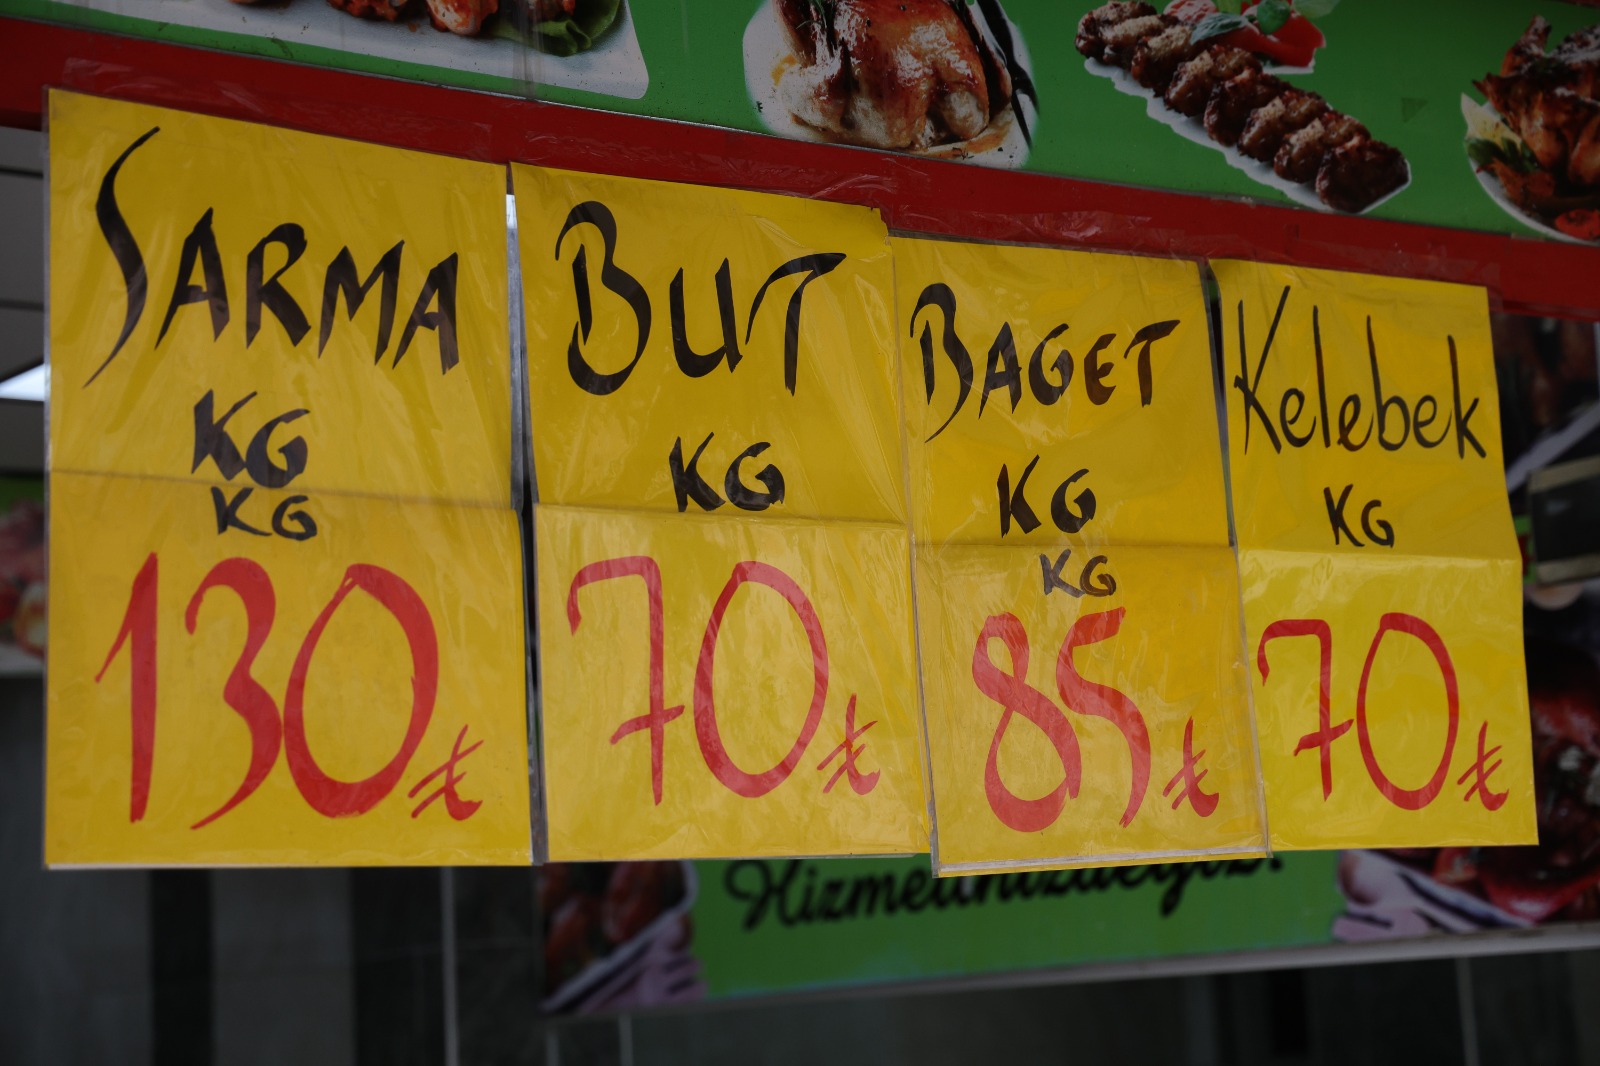 SARMA
KG
KG
130₺
BUT
KG
70₺
BAGET
KG
KG
85₺
Kelebek
KG
70₺